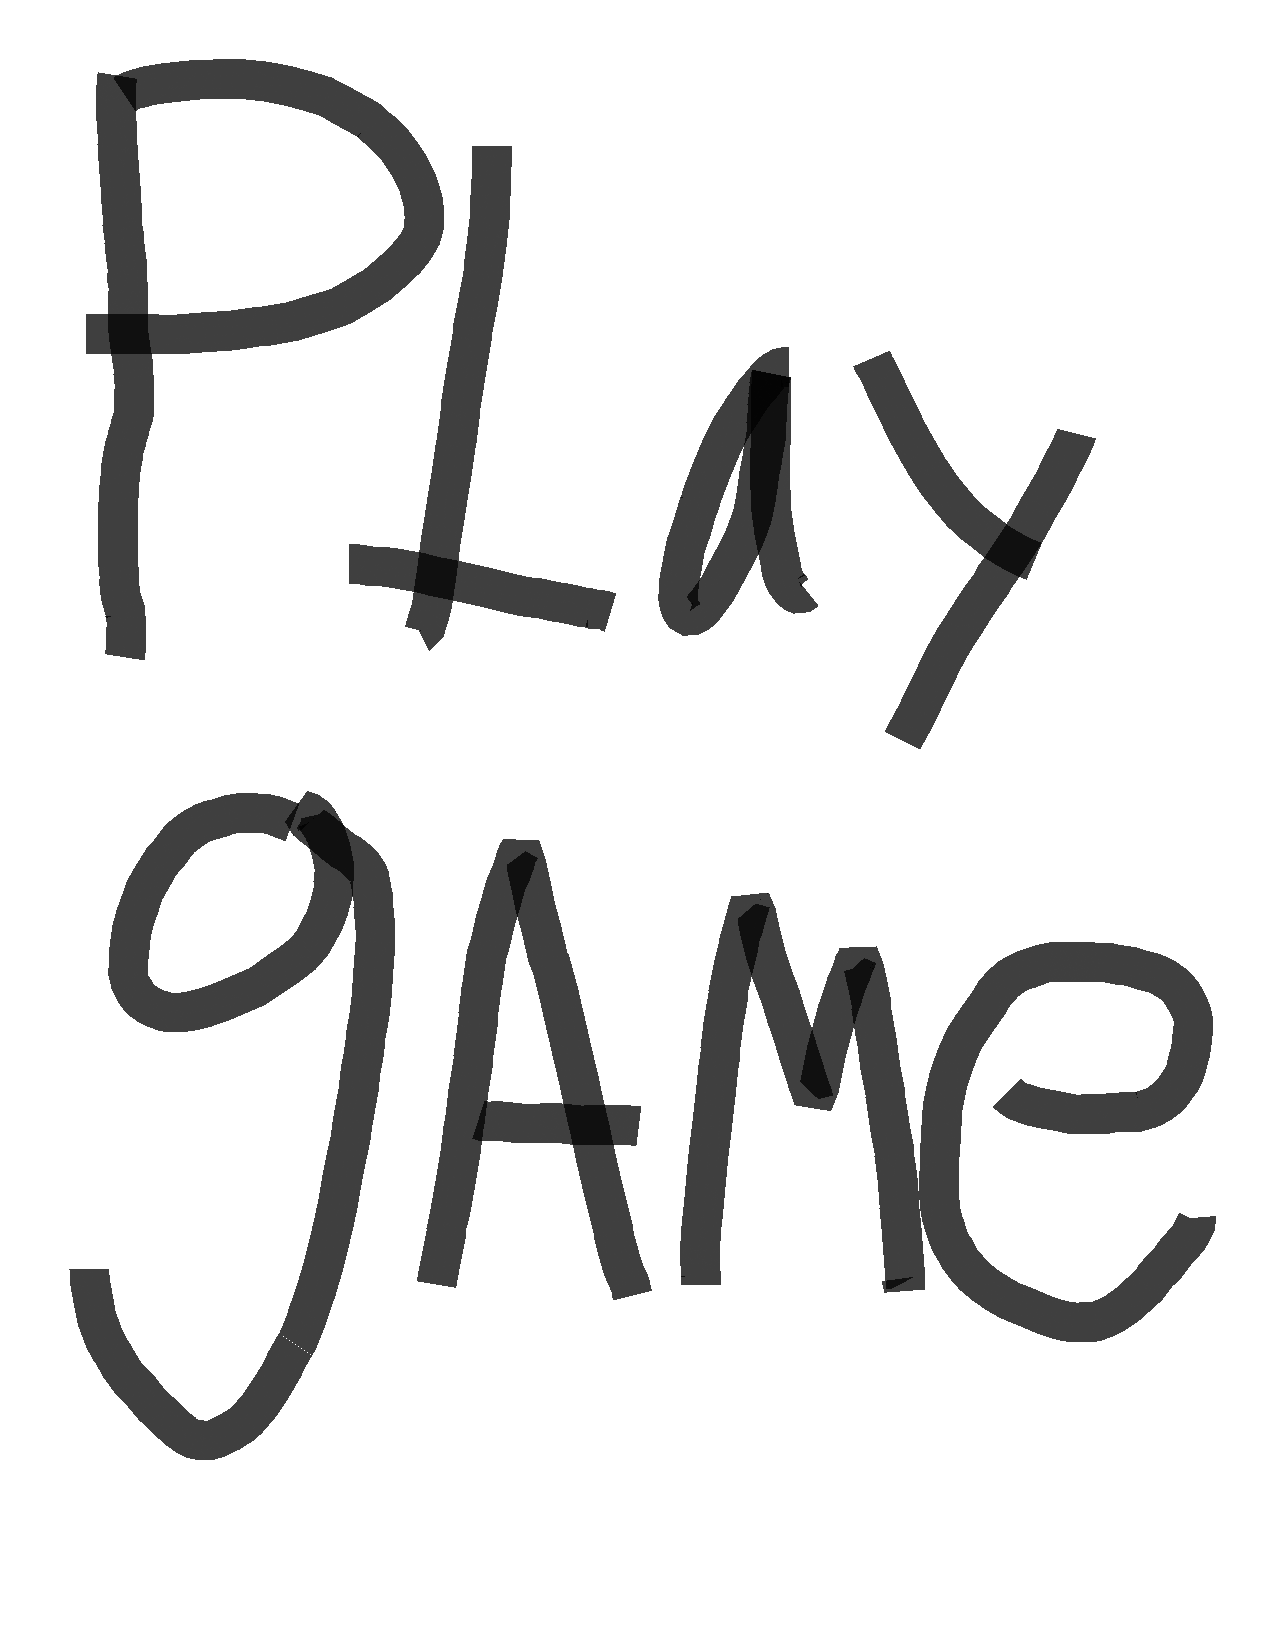 PLay
gAMe